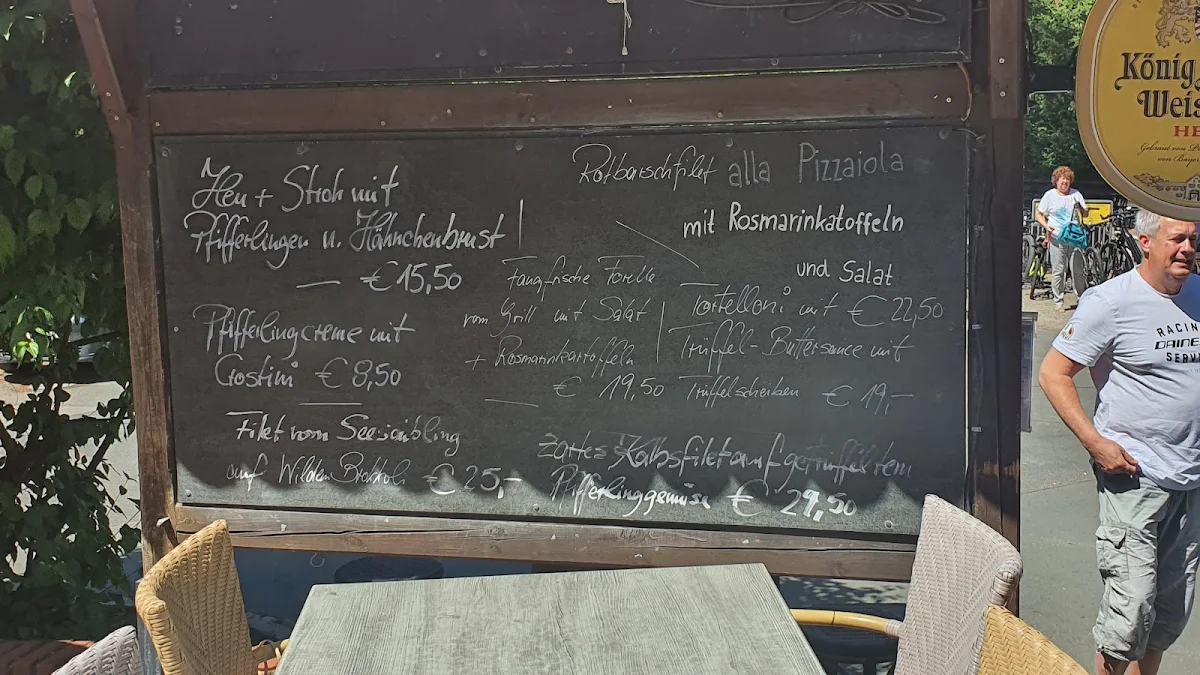 Heu + Stroh mit
Pfifferlingen u. Hähnchenbrust
— €15,50
Pfifferlingcreme mit
Crostini €8,50
Filet vom Seesaibling
auf Wildem Brokkoli €25,-
Fangfrische Forelle
vom Grill mit Salat
+ Rosmarinkartoffeln
€ 19,50
Rotbarschfilet alla Pizzaiola
mit Rosmarinkatoffeln
und Salat
€22,50
Tortelloni mit
Trüffel-Buttersauce mit
Trüffelscheiben €19,-
zartes Kalbsfilet auf getrüffeltem
Pfifferlinggemüse € 29,50
König
Weis
HE
Gebraut von P
von Bayer
RACIN
DAINE
SERV